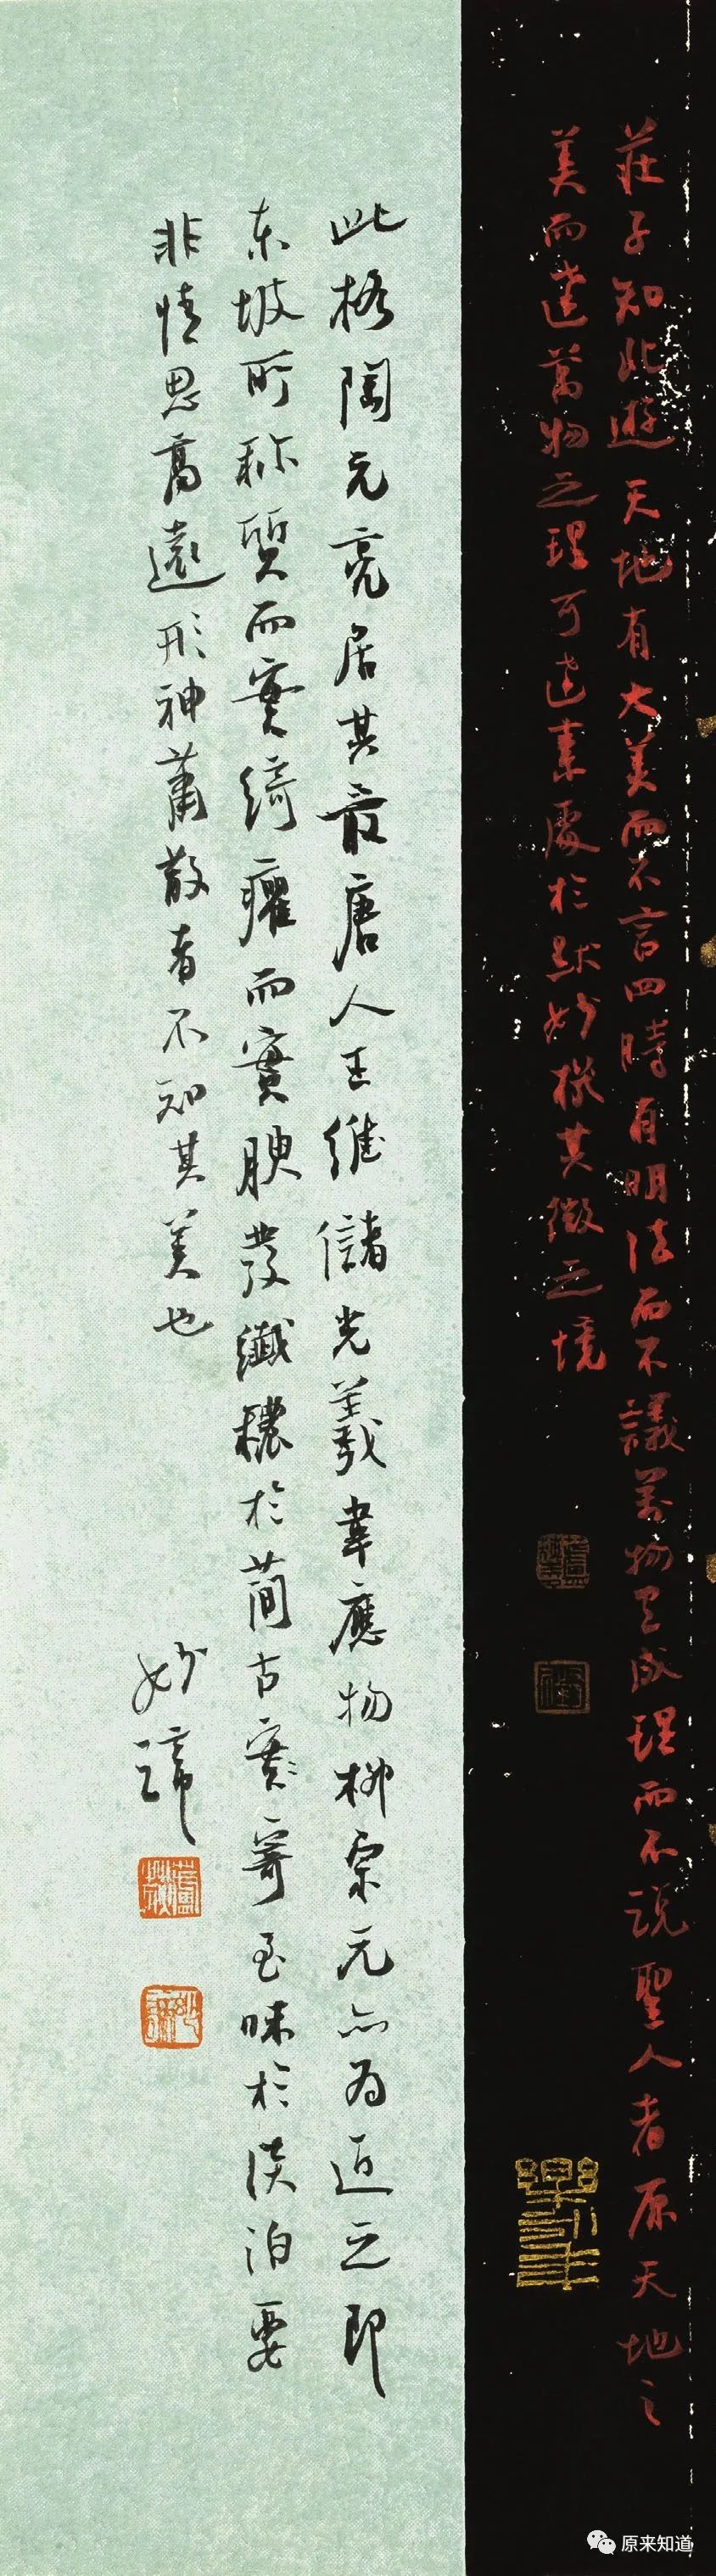 莊子知北遊天地有大美而不言四時有明法而不議萬物有成理而不說聖人者原天地之
美而達萬物之理可達素處於默妙機其微之境
此格陶元亮居其最唐人王維儲光羲韋應物柳宗元亦為近之即
东坡所称質而實綺癯而實腴發纖穠於蕳古寞寄至味於淡泊要
非情思高遠形神蕭散者不知其美也
妙諦
原来知道